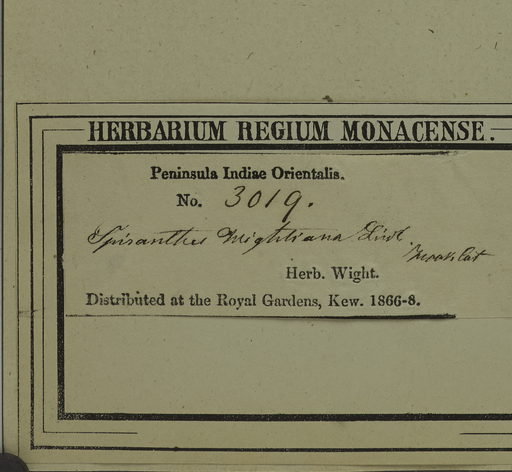 HERBARIUM REGIUM MONACENSE.
Peninsula Indiae Orientalis.
No. 3019.
Spiranthes Wightiana Lindl.
Herb. Wight.
Distributed at the Royal Gardens, Kew. 1866-8.